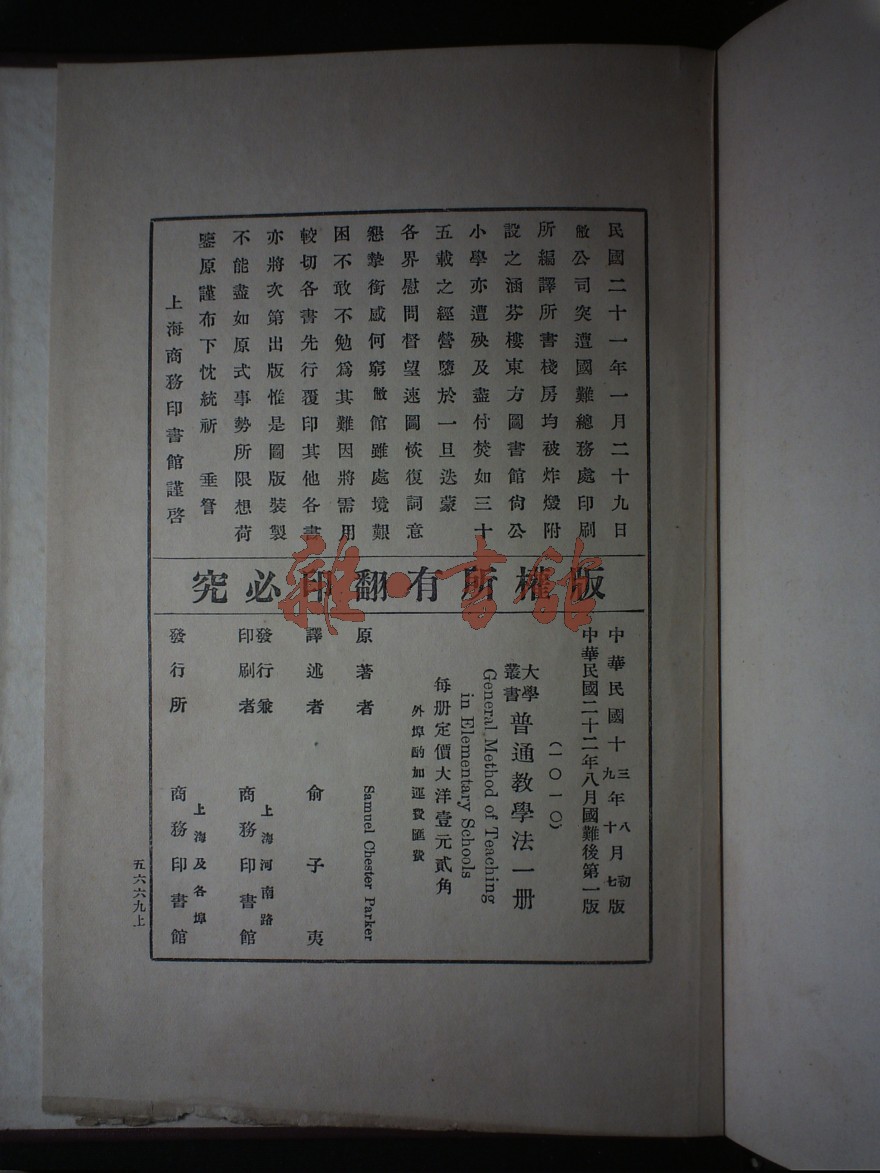 民國二十一年一月二十九日
敝公司突遭國難總務處印刷
所編譯所書棧房均被炸燬附
設之涵芬樓東方圖書館尙公
小學亦遭殃及盡付焚如三十
五載之經營墮於一旦迭蒙
各界慰問督望速圖恢復詞意
懇摯銜感何窮敝館雖處境艱
困不敢不勉爲其難因將需用
較切各書先行覆印其他各書
亦將次第出版惟是圖版裝製
不能盡如原式事勢所限想荷
鑒原謹布下忱統祈 垂詧
上海商務印書館謹啓
版權所有翻印必究
雜·書館
中華民國十三年八月初版
九 十 七
中華民國二十二年八月國難後第一版
(一〇一〇)
大學叢書 普通教學法一册
General Method of Teaching
in Elementary Schools
每册定價大洋壹元貳角
外埠酌加運費匯費
原著者 Samuel Chester Parker
譯述者 俞子夷
發行兼印刷者 上海河南路 商務印書館
發行所 上海及各埠 商務印書館
五六六九上